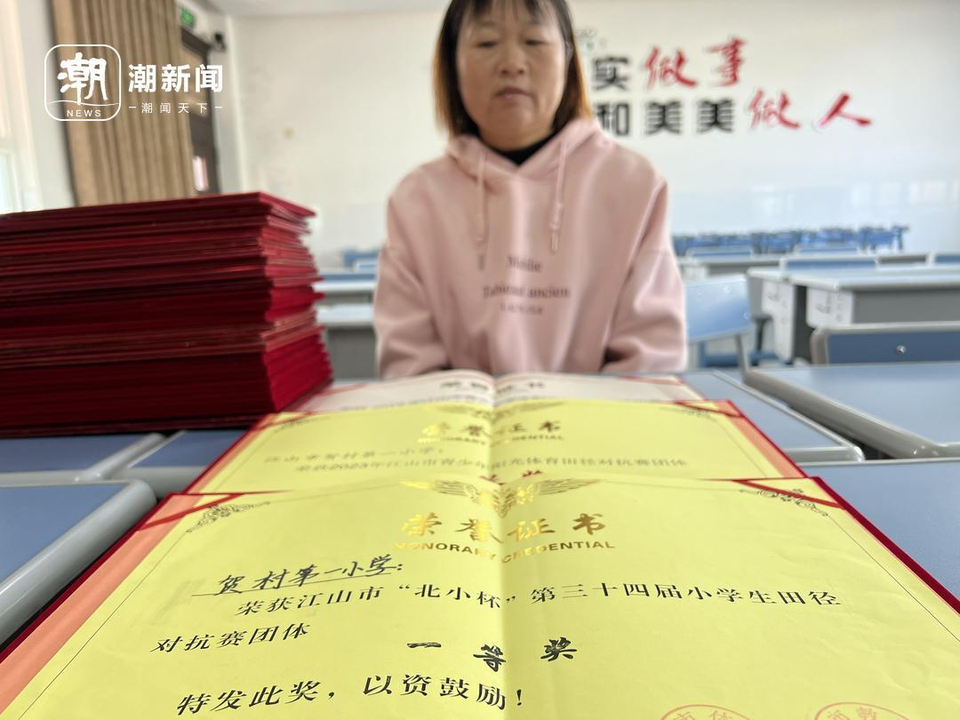 潮
NEWS
潮新闻
潮闻天下
实做事
和美美做人
荣誉证书
HONORARY CREDENTIAL
江山市贺村第一小学:
荣获2023年江山市青少年阳光体育田径对抗赛团体
荣誉证书
HONORARY CREDENTIAL
贺村第一小学:
荣获江山市“北小杯”第三十四届小学生田径
对抗赛团体
一等奖
特发此奖，以资鼓励!